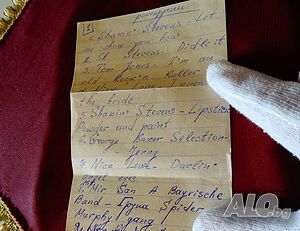 1
1. Shakin' Stevens - Let
me show you how
2. Sh. Stevens - Didl it
3. Tom Jones - I'm an
old Rock'n Roller
the bride
5. Shakin' Stevens - Lipstick
Powder and paint
6. George Baker Selection -
4. Nick Love - Darlin'
angel eyes
8. Mir San A Bayrische
Band - Група Spider
Murphy gang
ALO.bg